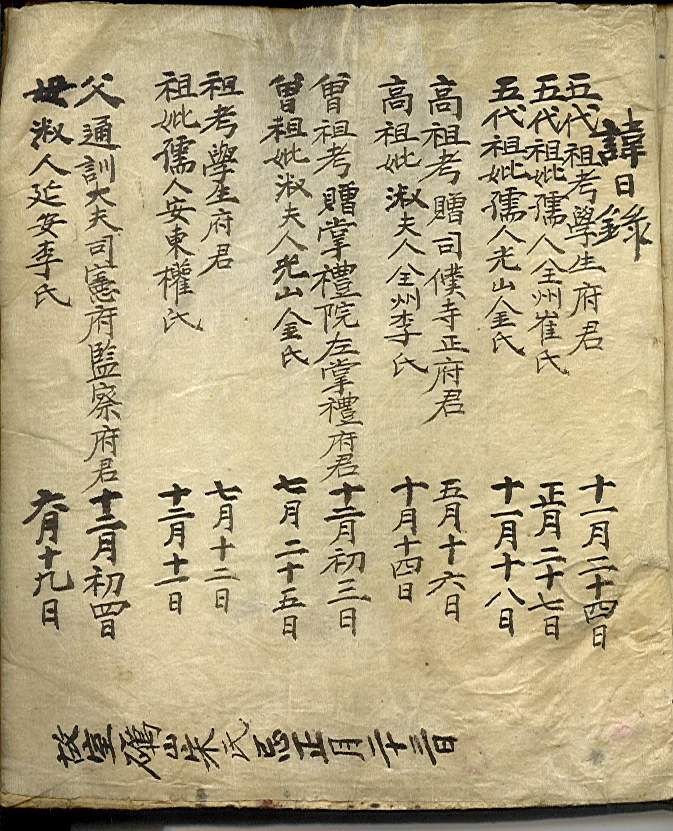 諱日錄
五代祖考學生府君 十一月二十四日
五代祖妣孺人全州崔氏 正月二十七日
五代祖妣孺人光山金氏 十一月十八日
高祖考贈司僕寺正府君 五月十六日
高祖妣淑夫人全州李氏 十月十四日
曾祖考贈掌禮院左掌禮府君 十二月初三日
曾祖妣淑夫人光山金氏 七月二十五日
祖考學生府君 七月十二日
祖妣孺人安東權氏 十二月十一日
父通訓大夫司憲府監察府君 十二月初四日
母淑人延安李氏 六月十九日
故室礪山宋氏忌正月二十三日